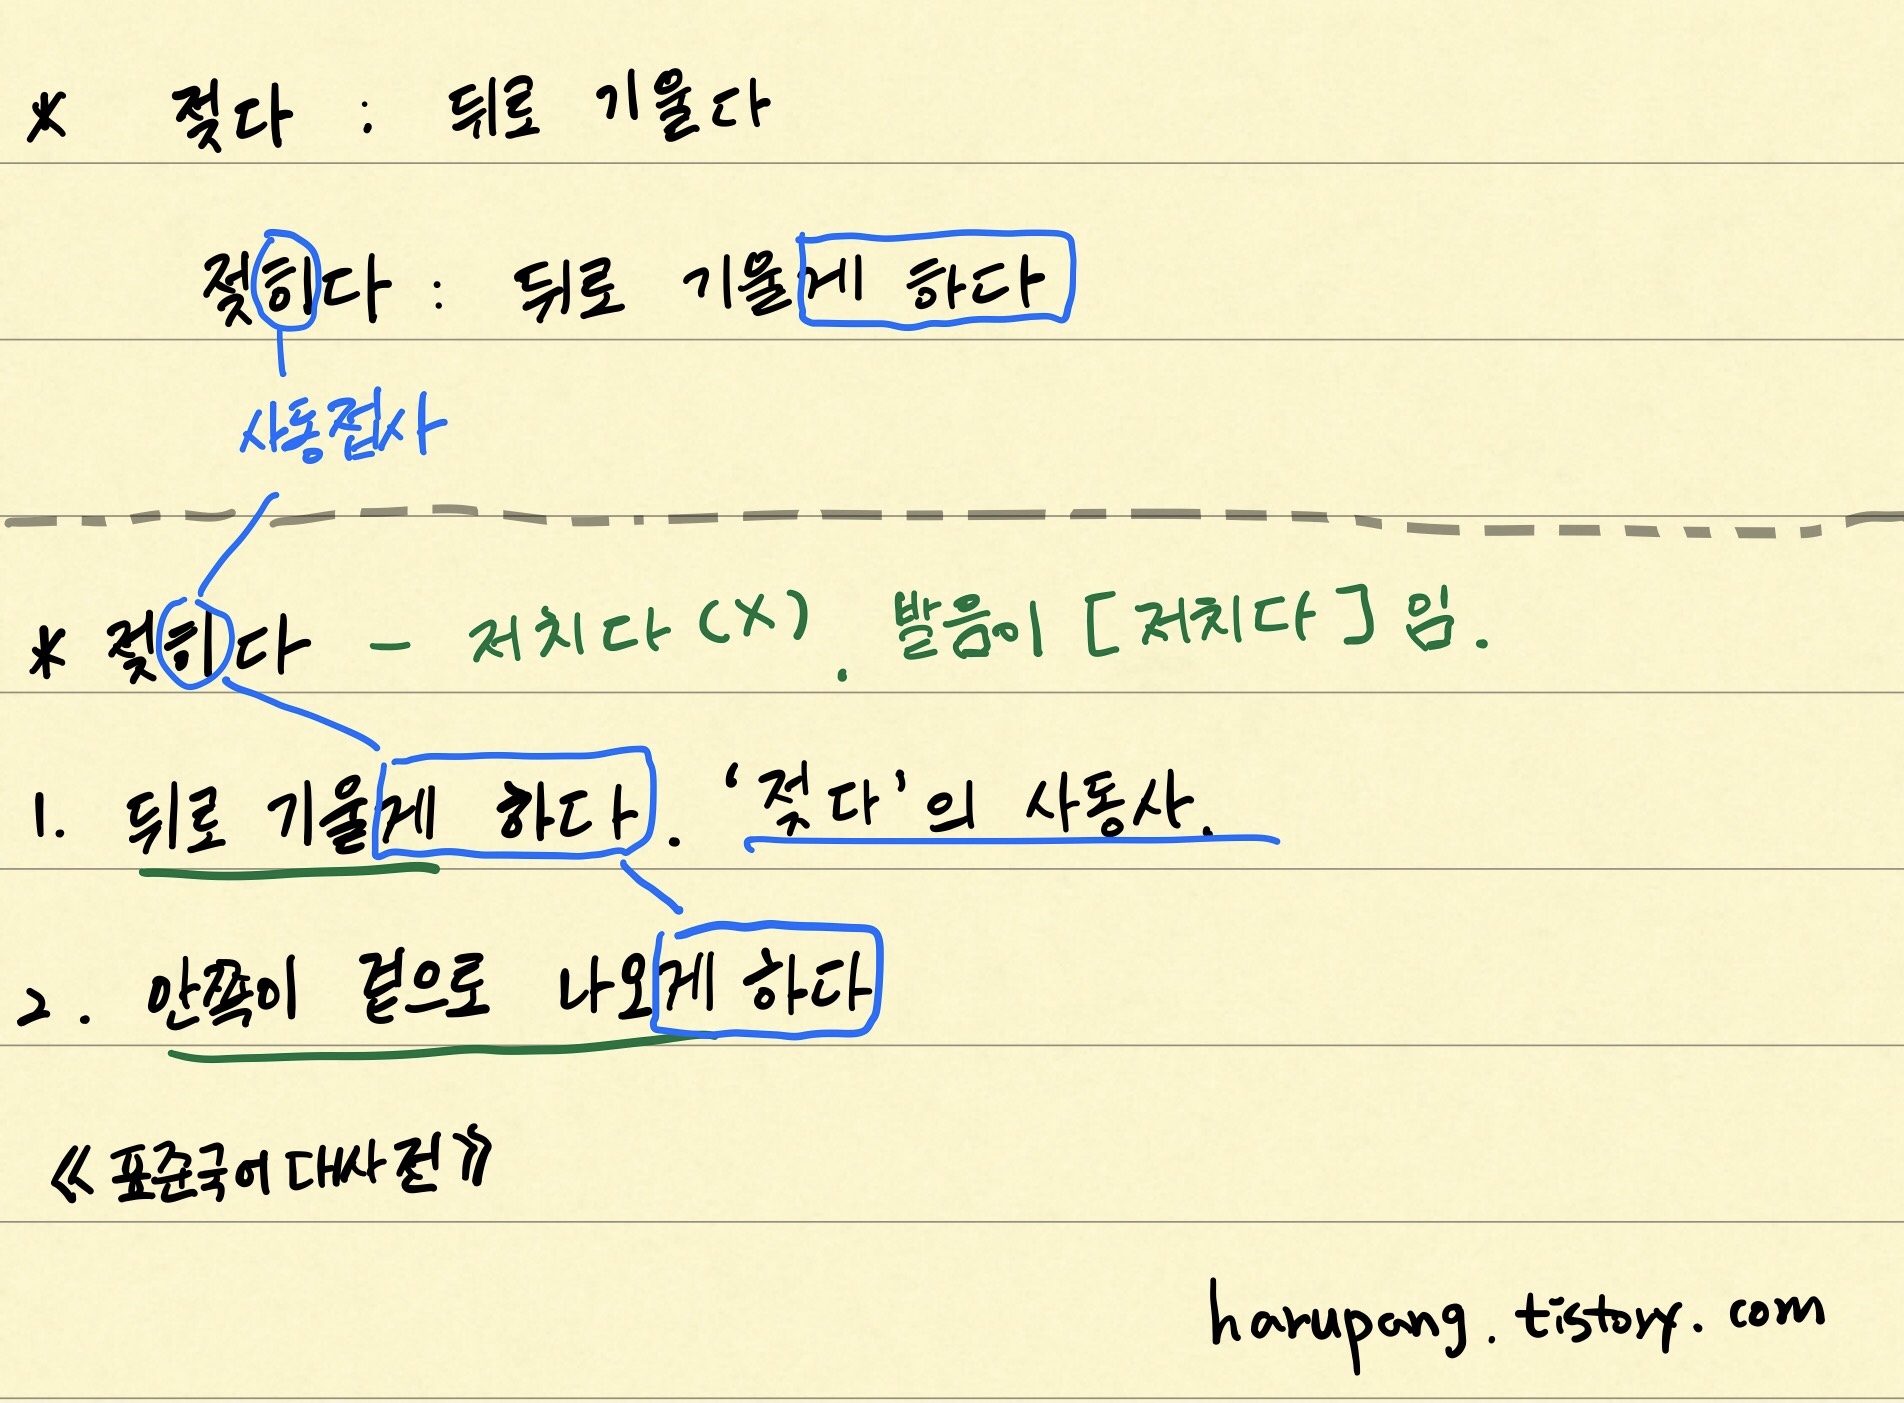 * 젖다 : 뒤로 기울다
젖히다 : 뒤로 기울게 하다
사동접사
* 젖히다 - 저치다 (X). 발음이 [저치다] 임.
1. 뒤로 기울게 하다. ‘젖다’의 사동사.
2. 안쪽이 겉으로 나오게 하다
《표준국어대사전》
harupang.tistory.com